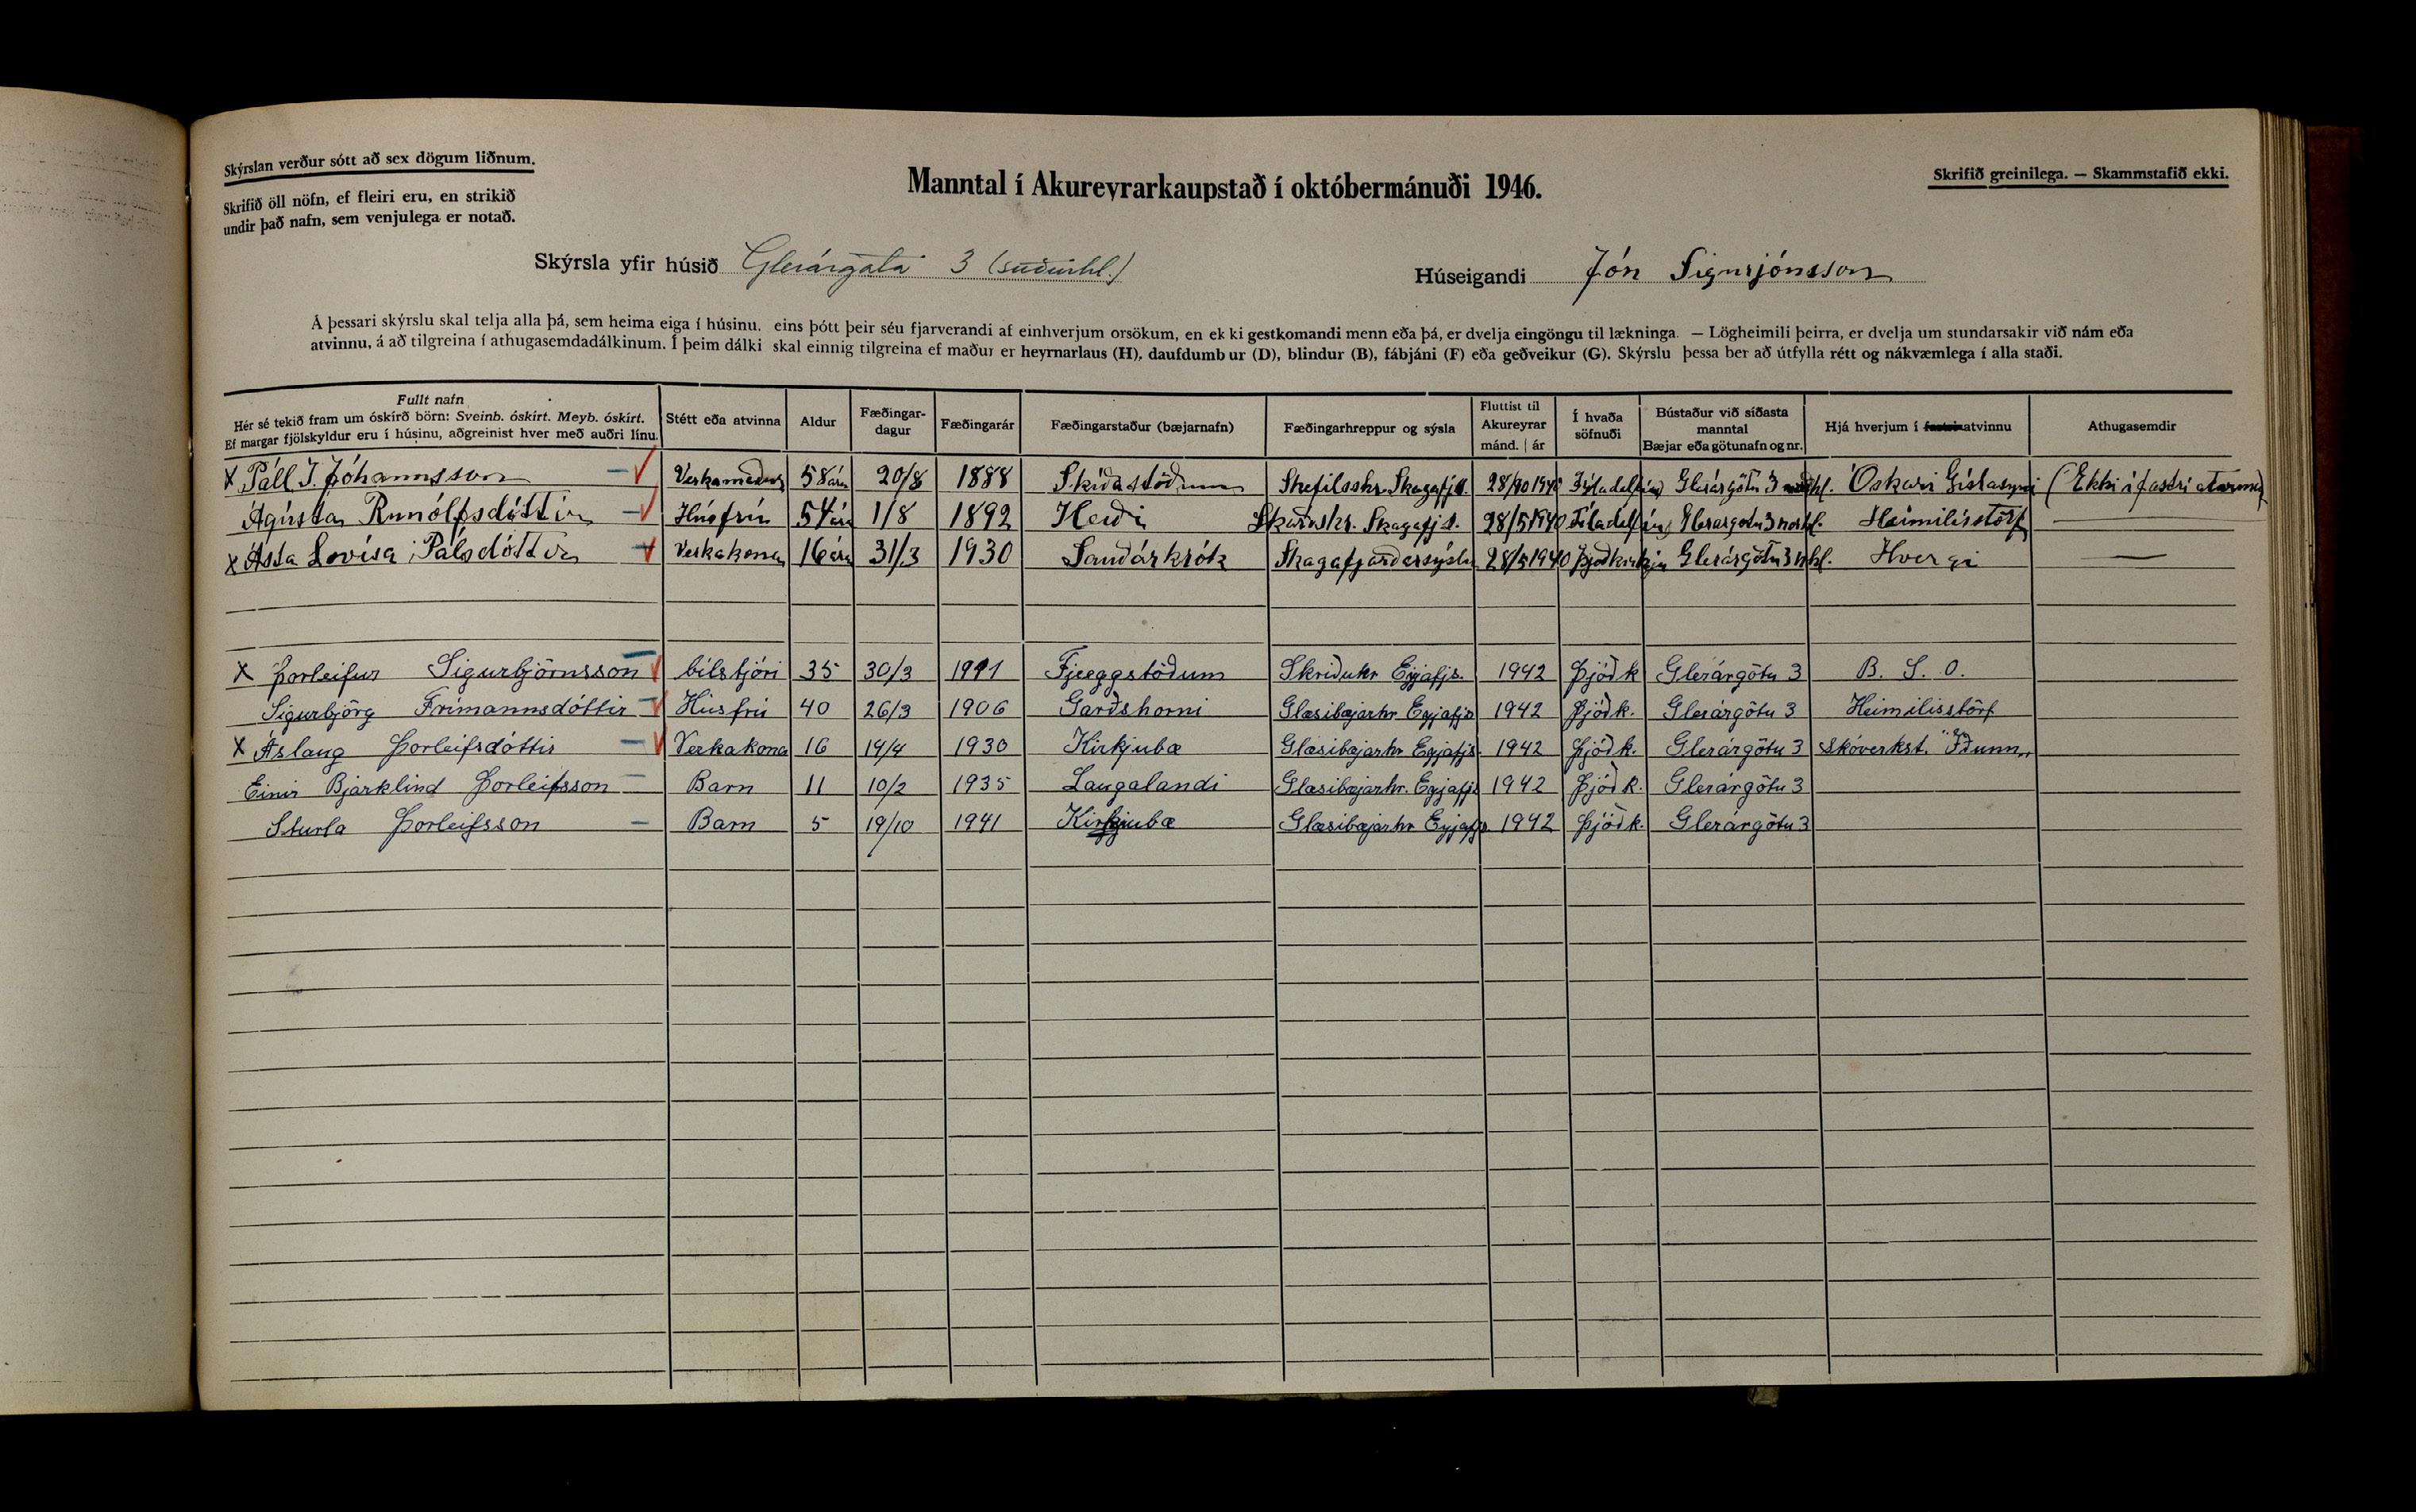 Skýrslan verður sótt að sex dögum liðnum.
Skrifið öll nöfn, ef fleiri eru, en strikið
undir það nafn, sem venjulega er notað.
Manntal í Akureyrarkaupstað í októbermánuði 1946.
Skrifið greinilega. — Skammstafið ekki.
Skýrsla yfir húsið Glerárgata 3 (suðurhl.)
Húseigandi Jón Sigurjónsson
Á þessari skýrslu skal telja alla þá, sem heima eiga í húsinu, eins þótt þeir séu fjarverandi af einhverjum orsökum, en ekki gestkomandi menn eða þá, er dvelja eingöngu til lækninga. — Lögheimili þeirra, er dvelja um stundarsakir við nám eða
atvinnu, á að tilgreina í athugasemdadálkinum. Í þeim dálki skal einnig tilgreina ef maður er heyrnarlaus (H), daufdumbur (D), blindur (B), fábjáni (F) eða geðveikur (G). Skýrslu þessa ber að útfylla rétt og nákvæmlega í alla staði.
Fullt nafn
Hér sé tekið fram um óskírð börn: Sveinb. óskírt. Meyb. óskírt.
Ef margar fjölskyldur eru í húsinu, aðgreinist hver með auðri línu.
Stétt eða atvinna
Aldur
Fæðingar-
dagur
Fæðingarár
Fæðingarstaður (bæjarnafn)
Fæðingarhreppur og sýsla
Fluttist til
Akureyrar
mánd. | ár
Í hvaða
söfnuði
Bústaður við síðasta
manntal
Bæjar eða götunafn og nr.
Hjá hverjum í fastri atvinnu
Athugasemdir
x Páll J. Jóhannsson — Verkamaður 58 ára 20/8 1888 Skíðastöðum Skefilsshr. Skagafjs. 1940 Fíladelfíu Glerárgötu 3 Óskari Gíslasyni (Ekki í fastri atvinnu)
Ágústa Runólfsdóttir — Húsfrú 54 ára 1/8 1892 Heiði Skarðshr. Skagafjs. 28/5 1940 Fíladelfíu Glerárgötu 3 norðhl. Heimilisstörf —
x Ásta Lovísa Pálsdóttir — Verkakona 16 ára 31/3 1930 Sauðárkrók Skagafjarðarsýslu 28/5 1940 Þjóðkirkju Glerárgötu 3 n.hl. Hvergi —
x Þorleifur Sigurbjörnsson — bílstjóri 35 30/3 1911 Fjeeggstöðum Skriðuhr Eyjafjs. 1942 Þjóðk Glerárgötu 3 B. S. O.
Sigurbjörg Frímannsdóttir — Húsfrú 40 26/3 1906 Garðshorni Glæsibæjarhr Eyjafjs 1942 Þjóðk. Glerárgötu 3 Heimilisstörf
x Áslaug Þorleifsdóttir — Verkakona 16 14/4 1930 Kirkjubæ Glæsibæjarhr Eyjafjs 1942 Þjóðk. Glerárgötu 3 Skóverkst. "Iðunn"
Einir Bjarklind Þorleifsson — Barn 11 10/2 1935 Laugalandi Glæsibæjarhr. Eyjafjs 1942 Þjóðk. Glerárgötu 3
Sturla Þorleifsson — Barn 5 19/10 1941 Kirkjubæ Glæsibæjarhr Eyjafjs. 1942 Þjóðk. Glerárgötu 3